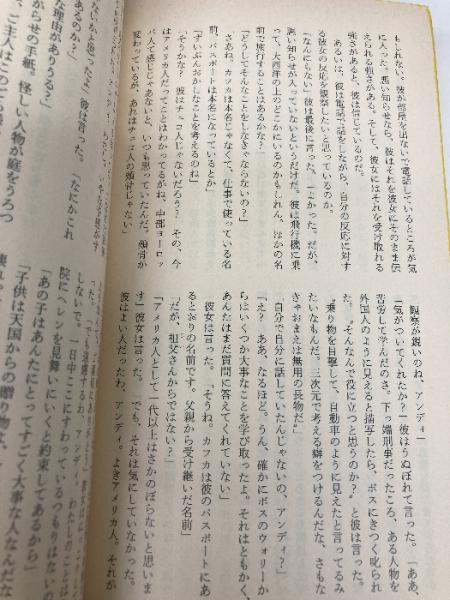 もしれない。彼が部屋を出ないで電話しているところが気
に入った。悪い知らせなら、彼はそれを彼女にそのまま伝
えられる強さがある。そして、彼女にはそれを受け取れる
強さがあると、彼は信じているのだ。
あるいは、彼は電話で話をしながら、自分の反応に対す
る彼女の反応を観察したいと思っているのか。
「なんにもない」彼は最後に言った。「よかった。だが、
悪い知らせが入っていないというだけだ。彼は飛行機に乗
って、大西洋の上のどこかにいるのかもしれん。ほかの名
前で旅行することはあるかな?」
「どうしてそんなことをしなきゃならないの?」
「さあね。カフカは本名じゃなくて、仕事で使っている名
前、パスポートは本名になっているとか」
「ずいぶんおかしなことを考えるのね」
「そうかな? 彼はチェコ人じゃないだろう? その、今
はアメリカ人だってことはわかってるがね、中部ヨーロッ
パ人て感じじゃあないと、いつも思っていたんだ。顔骨が
変わっているが、あれはチェコ人の頬骨じゃない」
「観察が鋭いのね、アンディ」
「気がついてくれたか?」彼はうぬぼれて言った。「ああ、
苦労して学んだのさ。下っ端刑事だったころ、ある人物を
外国人のように見えると描写したら、ボスにきつく叱られ
た。〝そんなんで役に立つと思うのか?〟と彼は言った。
〝乗り物を目撃して、自動車のように見えたと言ってるみ
たいなもんだ。三次元で考える癖をつけるんだな、さもな
きゃおまえは無用の長物だ〟」
「自分で自分に話していたんじゃないの、アンディ?」
「え? ああ、なるほど。うん、確かにボスのウォリーか
らはいくつか大事なことを学び取ったよ。それはともかく、
あんたはまだ質問に答えてくれていない」
彼女は言った。「そうね。カフカは彼のパスポートにあ
るとおりの名前です。父親から受け継いだ名前」
「だが、祖父さんからではない?」
「アメリカ人として一代以上はさかのぼらないと思いま
す」彼女は言った。「でも、それは気にしていなかった。
彼はいい人だったわ、アンディ。よきアメリカ人。それが
ないかと思ったよ」彼は言った。「なにかこれ
な理由がありうる?」
があるのか?」
からの手紙。怪しい人物が庭をうろつ
「あの子はあんたにと、てすごく大事な人なんだな
「子供は天国からの贈り物よ、